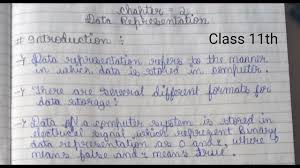 Chapter = 2
Data Representation
# Introduction :
Class 11th
→ Data representation refers to the manner
in which data is stored in computer.
→ There are several different formats for
data storage:
→ Data of a computer system is stored in
electrical signal which represent binary
data representation as 0 and 1, where 0
means false and 1 means true.